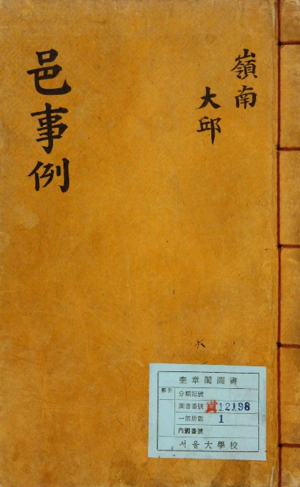 嶺南
大邱
邑事例
奎章閣圖書
分類記號
圖書番號 12198
一部冊數 1
內國番號
서울大學校